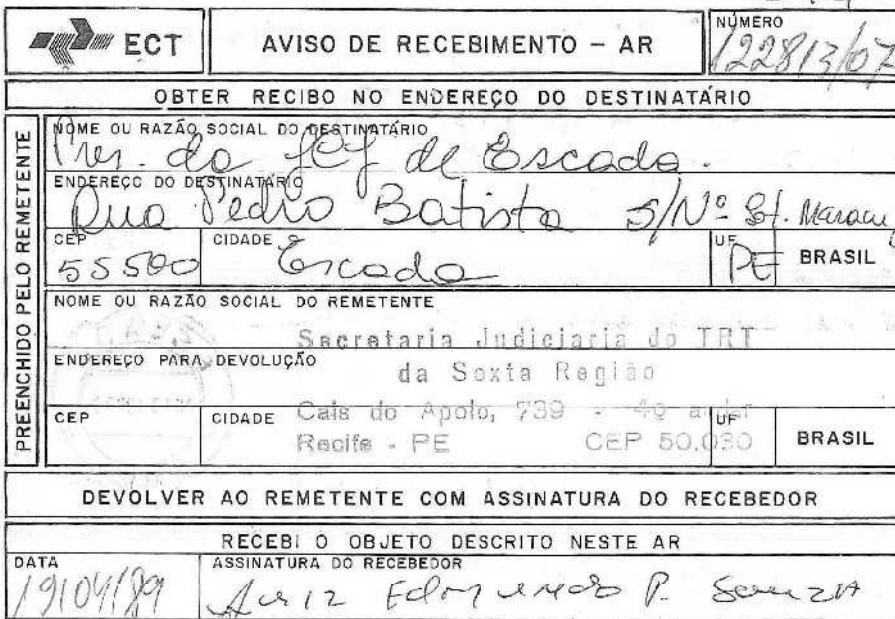 ECT
AVISO DE RECEBIMENTO – AR
NÚMERO
122813/07
OBTER RECIBO NO ENDEREÇO DO DESTINATÁRIO
PREENCHIDO PELO REMETENTE
NOME OU RAZÃO SOCIAL DO DESTINATÁRIO
da JCJ de Escada.
ENDEREÇO DO DESTINATÁRIO
Rua Pedro Batista S/Nº
CEP
55500
CIDADE
Escada
UF
PE
BRASIL
NOME OU RAZÃO SOCIAL DO REMETENTE
Secretaria Judiciaria do TRT
ENDEREÇO PARA DEVOLUÇÃO
da Sexta Região
CEP
CIDADE
Cais do Apolo, 739 - 4º andar
Recife - PE CEP 50.030
UF
BRASIL
DEVOLVER AO REMETENTE COM ASSINATURA DO RECEBEDOR
RECEBI O OBJETO DESCRITO NESTE AR
DATA
19/04/89
ASSINATURA DO RECEBEDOR
Luiz Edmundo P. Souza